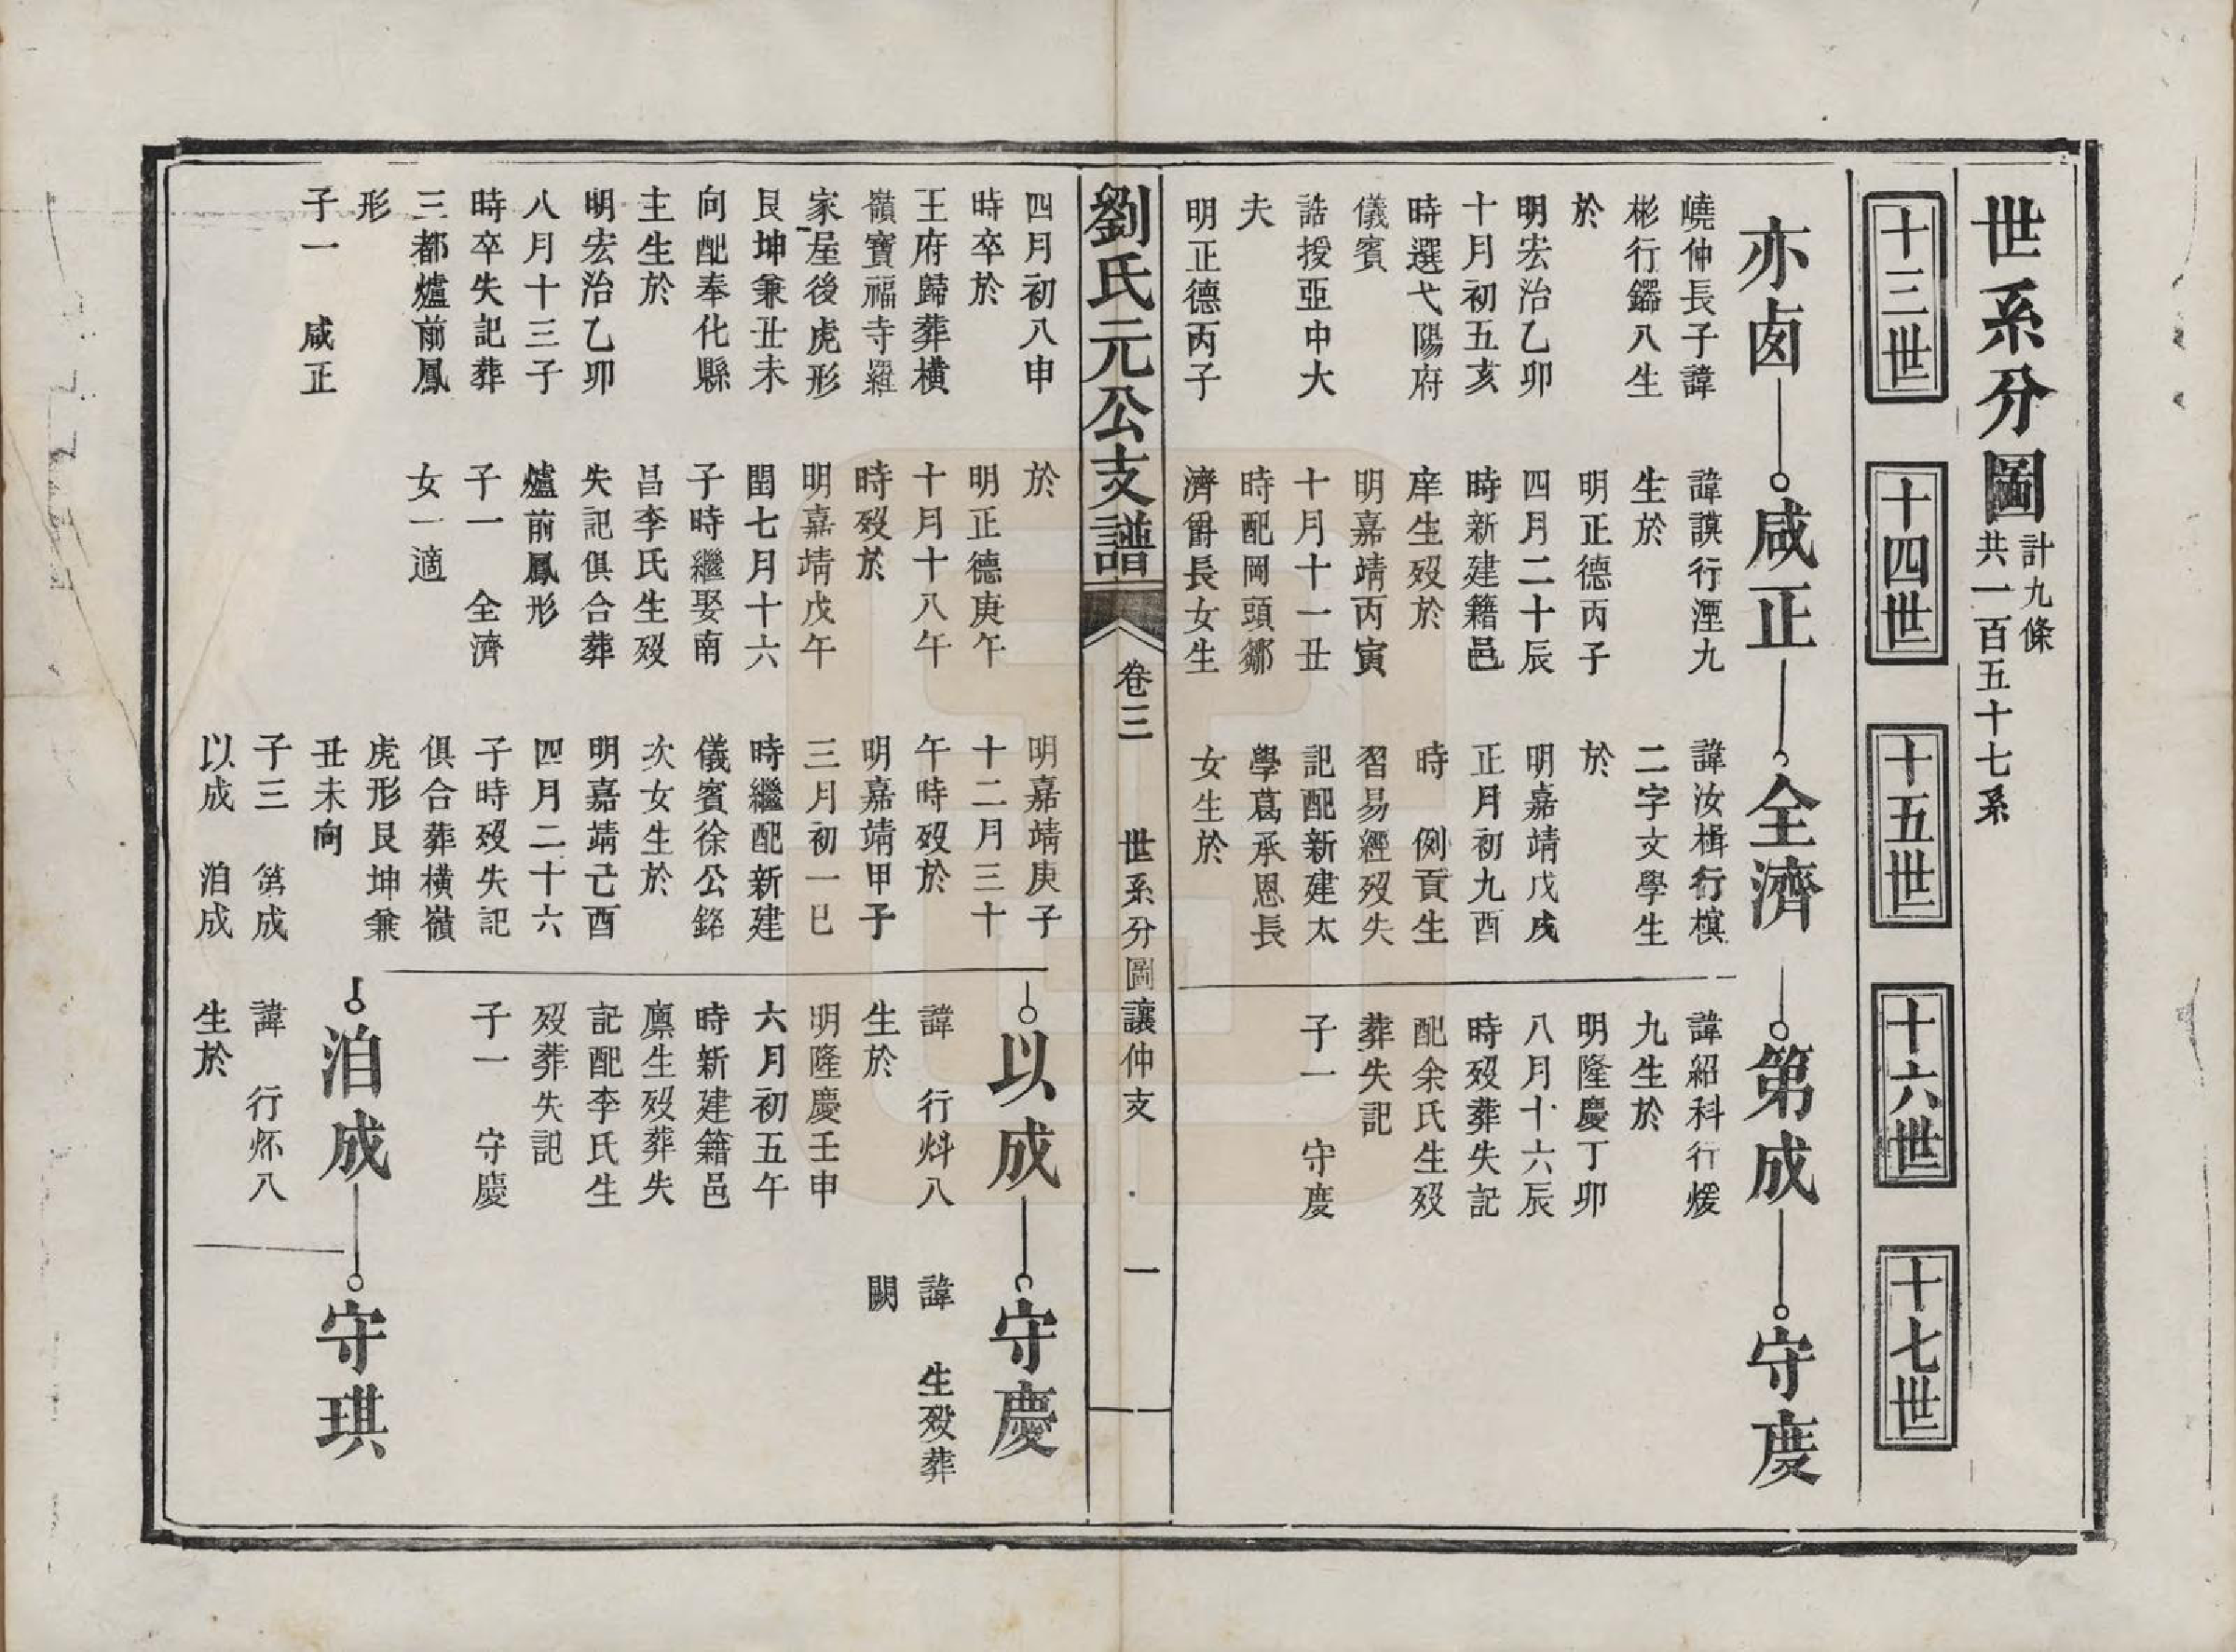 世系分圖
計九條
共一百五十七系
十三世
十四世
十五世
十六世
十七世
亦卤
咸正
全濟
第成
守慶
嶢仲長子諱
彬行鐊八生
於
明宏治乙卯
十月初五亥
時選弋陽府
儀賓
誥授亞中大
夫
明正德丙子
諱謨行湮九
生於
明正德丙子
四月二十辰
時新建籍邑
庠生歿於
明嘉靖丙寅
十月十一丑
時配岡頭鄒
濟爵長女生
諱汝楫行槙
二字文學生
於
明嘉靖戊戌
正月初九酉
時 例貢生
習易經歿失
記配新建太
學葛承恩長
女生於
諱紹科行煖
九生於
明隆慶丁卯
八月十六辰
時歿葬失記
配余氏生歿
葬失記
子一 守慶
劉氏元公支譜
卷三
世系分圖讓仲支
一
四月初八申
時卒於
王府歸葬橫
嶺寶福寺羅
家屋後虎形
艮坤兼丑未
向配奉化縣
主生於
明宏治乙卯
八月十三子
時卒失記葬
三都爐前鳳
形
子一 咸正
於
明正德庚午
十月十八午
時歿於
明嘉靖戊午
閏七月十六
子時繼娶南
昌李氏生歿
失記俱合葬
爐前鳳形
子一 全濟
女一適
明嘉靖庚子
十二月三十
午時歿於
明嘉靖甲子
三月初一巳
時繼配新建
儀賓徐公銘
次女生於
明嘉靖己酉
四月二十六
子時歿失記
俱合葬橫嶺
虎形艮坤兼
丑未向
子三 第成
以成 洎成
以成
守慶
諱 行炓八
生於
明隆慶壬申
六月初五午
時新建籍邑
廩生歿葬失
記配李氏生
歿葬失記
子一 守慶
諱 生歿葬
闕
洎成
守琪
諱 行炋八
生於